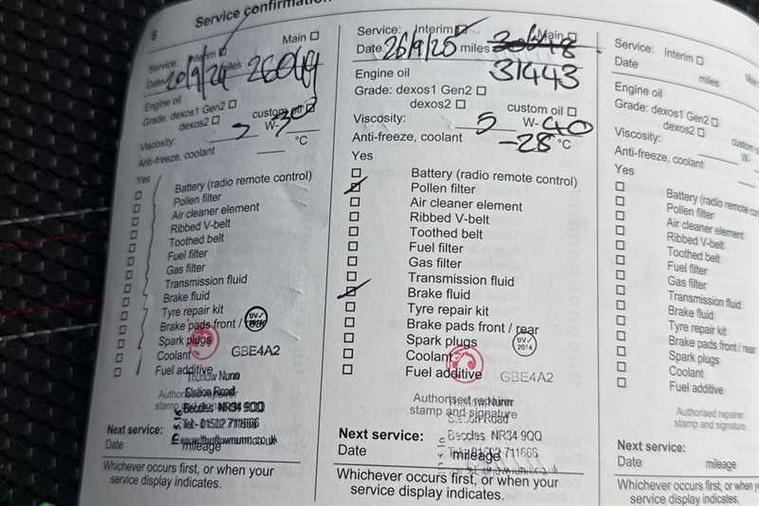 8
Service confirmation
Service: Interim ☑ Main ☐
Date 20/9/24 miles 26049
Engine oil
Grade: dexos1 Gen2 ☐
dexos2 ☐ custom oil ☑
Viscosity: W-30
Anti-freeze, coolant °C
Yes
☐ Battery (radio remote control)
☐ Pollen filter
☐ Air cleaner element
☐ Ribbed V-belt
☐ Toothed belt
☐ Fuel filter
☐ Gas filter
☐ Transmission fluid
☐ Brake fluid
☐ Tyre repair kit
☐ Brake pads front / rear
☐ Spark plugs
☐ Coolant GBE4A2
☐ Fuel additive
Thurlow Nunn
Station Road
Beccles NR34 9QQ
Next service:
Date mileage
Whichever occurs first, or when your
service display indicates.
Service: Interim ☑ Main ☐
Date 26/9/25 miles
31443
Engine oil
Grade: dexos1 Gen2 ☐
dexos2 ☐ custom oil ☐
Viscosity: 5 W-40
Anti-freeze, coolant -28 °C
Yes
☐ Battery (radio remote control)
☑ Pollen filter
☐ Air cleaner element
☐ Ribbed V-belt
☐ Toothed belt
☐ Fuel filter
☐ Gas filter
☐ Transmission fluid
☑ Brake fluid
☐ Tyre repair kit
☐ Brake pads front / rear
☐ Spark plugs
☐ Coolant
☐ Fuel additive GBE4A2
Authorised
stamp and signature
Beccles NR34 9QQ
Next service:
Date mileage
Whichever occurs first, or when your
service display indicates.
Service: Interim ☐
Date miles
Engine oil
Grade: dexos1 Gen2 ☐
dexos2 ☐
Viscosity:
Anti-freeze, coolant
Yes
☐ Battery (radio remote
☐ Pollen filter
☐ Air cleaner element
☐ Ribbed V-belt
☐ Toothed belt
☐ Fuel filter
☐ Gas filter
☐ Transmission fluid
☐ Brake fluid
☐ Tyre repair kit
☐ Brake pads front / rear
☐ Spark plugs
☐ Coolant
☐ Fuel additive
Authorised repairer
stamp and signature
Next service:
Date mileage
Whichever occurs first, or when
service display indicates.